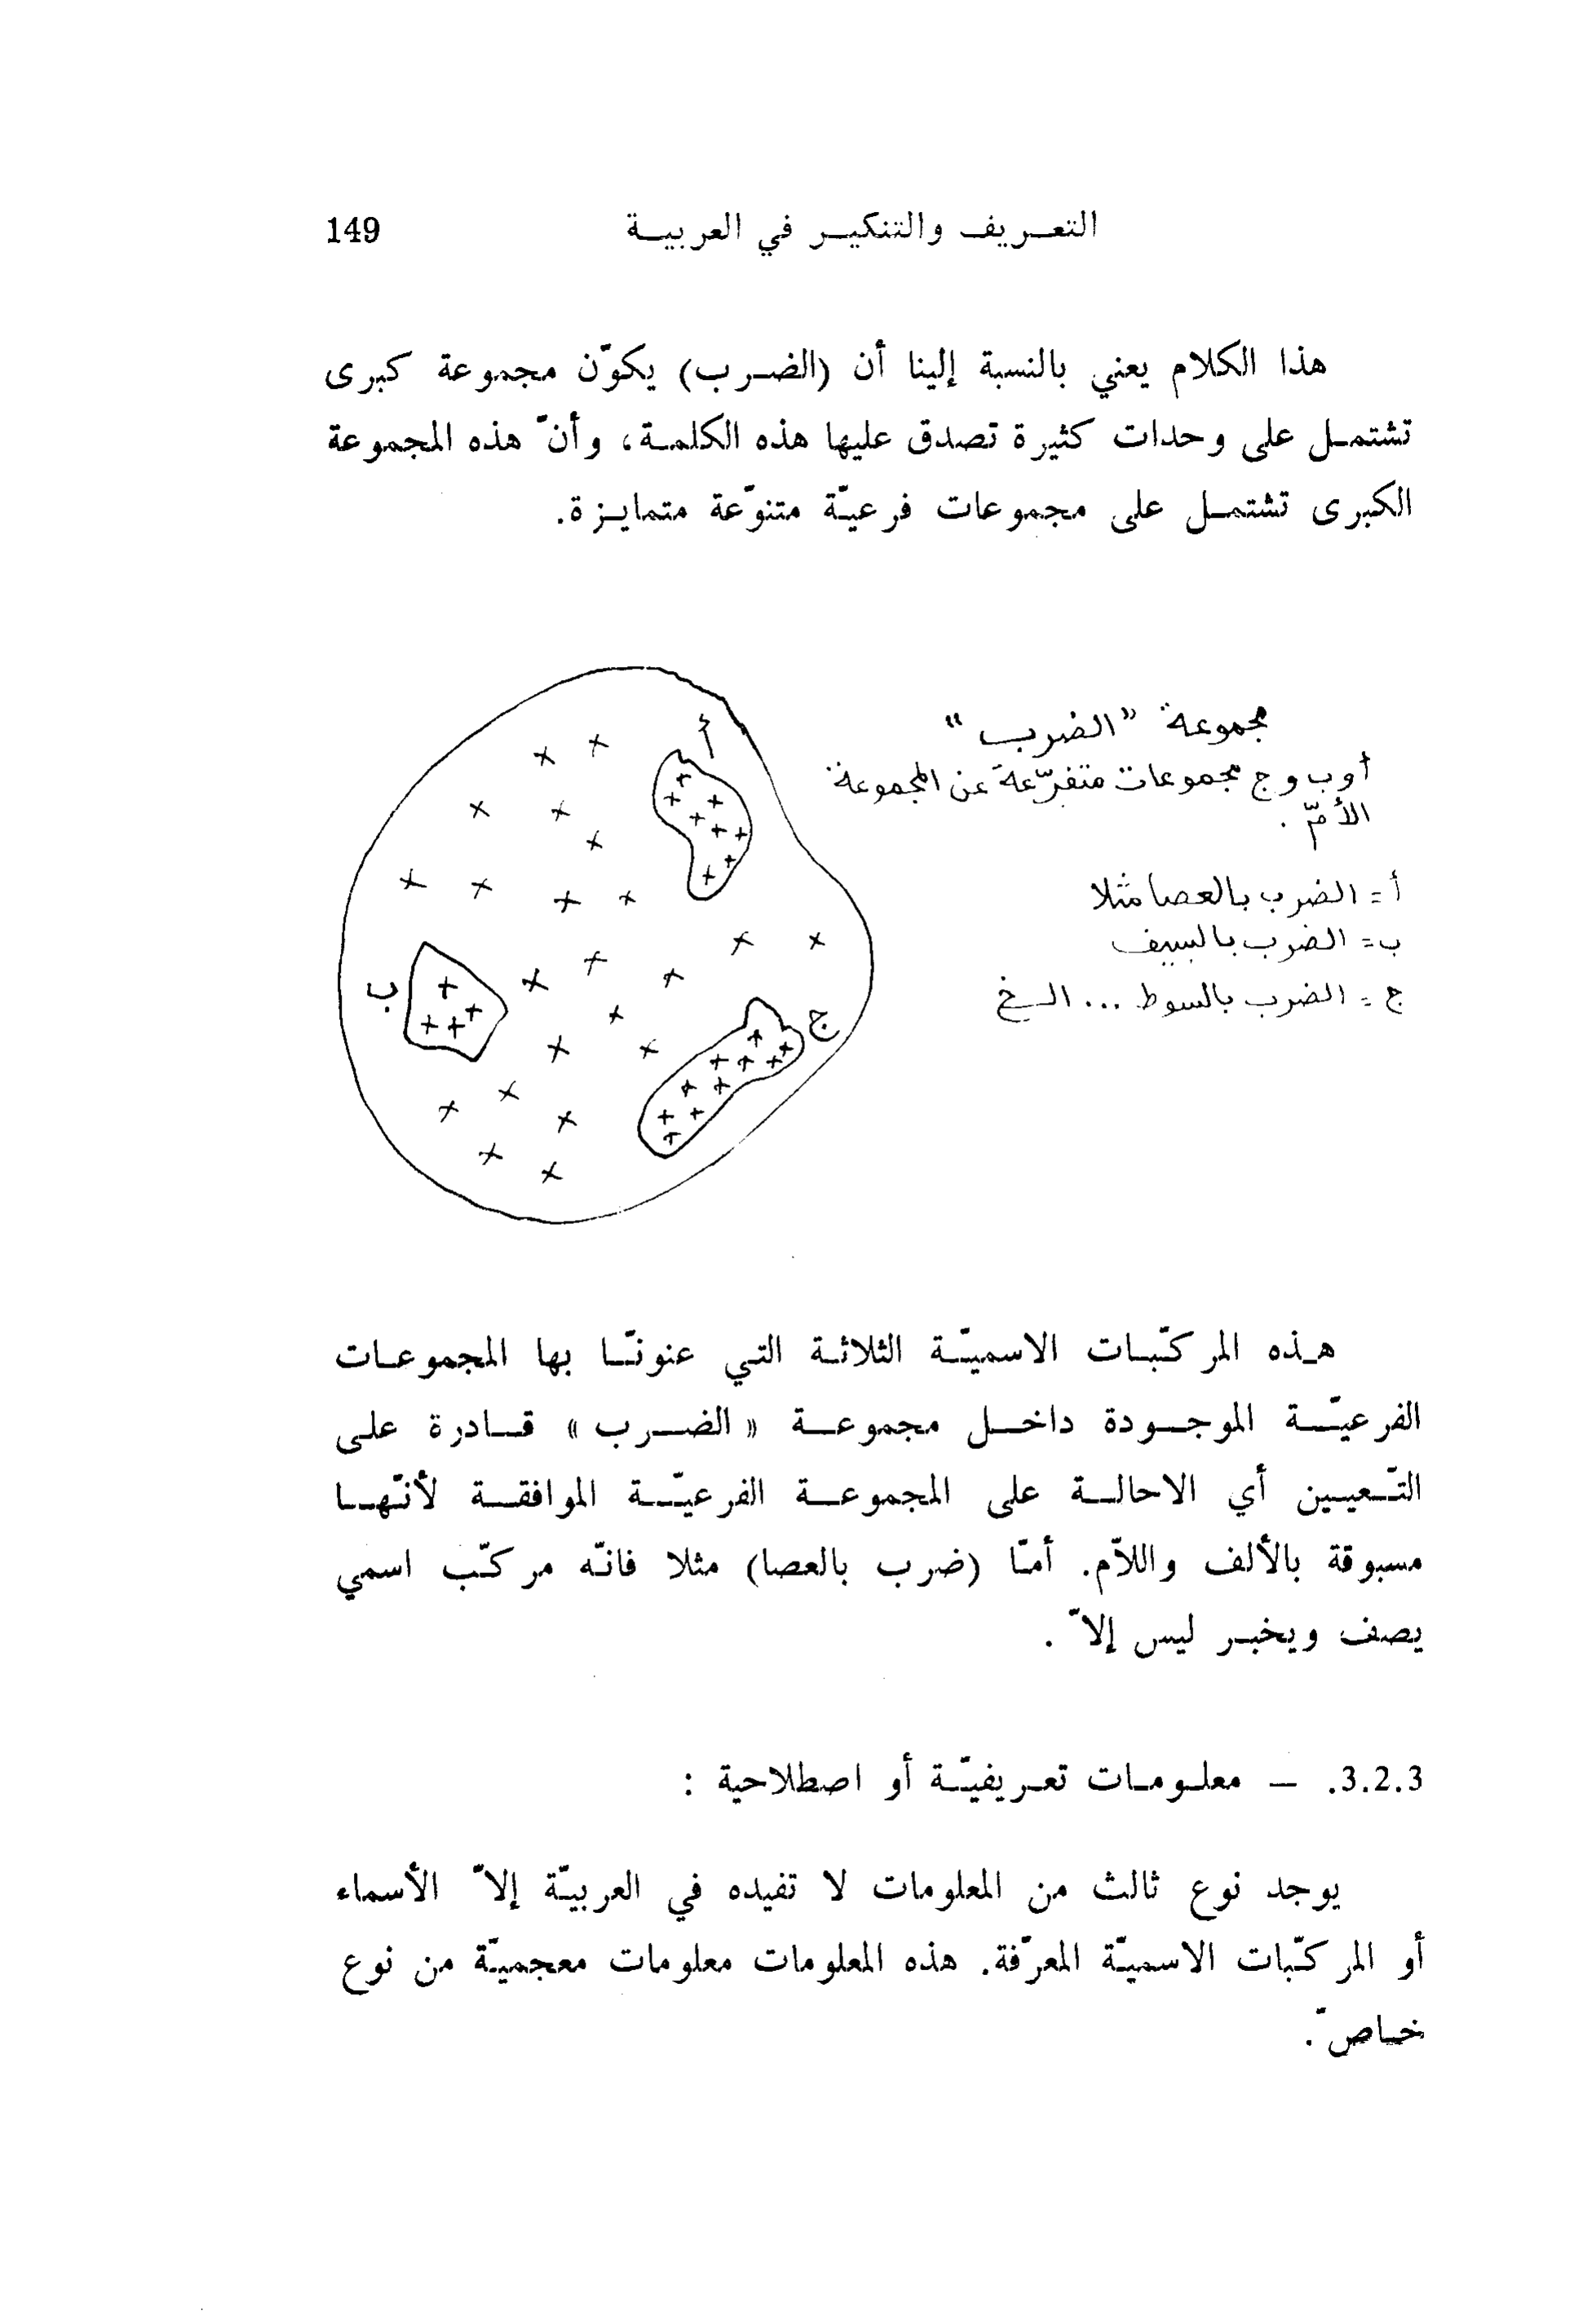 التعريف والتنكير في العربية 149
هذا الكلام يعني بالنسبة إلينا أن (الضرب) يكوّن مجموعة كبرى
تشتمل على وحدات كثيرة تصدق عليها هذه الكلمة، وأنّ هذه المجموعة
الكبرى تشتمل على مجموعات فرعيّة متنوّعة متمايزة.
مجموعة "الضرب"
أ و ب و ج مجموعات متفرّعة عن المجموعة
الأمّ.
أ = الضرب بالعصا مثلا
ب = الضرب بالسيف
ج = الضرب بالسوط ... الخ
أ
ب
ج
هذه المركّبات الاسميّة الثلاثة التي عنونّا بها المجموعات
الفرعيّة الموجودة داخل مجموعة « الضرب » قادرة على
التّعيين أي الاحالة على المجموعة الفرعيّة الموافقة لأنّها
مسبوقة بالألف واللاّم. أمّا (ضرب بالعصا) مثلا فانّه مركّب اسمي
يصف ويخبر ليس إلاّ .
3.2.3. — معلومات تعريفيّة أو اصطلاحية :
يوجد نوع ثالث من المعلومات لا تفيده في العربيّة إلاّ الأسماء
أو المركّبات الاسميّة المعرّفة. هذه المعلومات معلومات معجميّة من نوع
خاصّ.